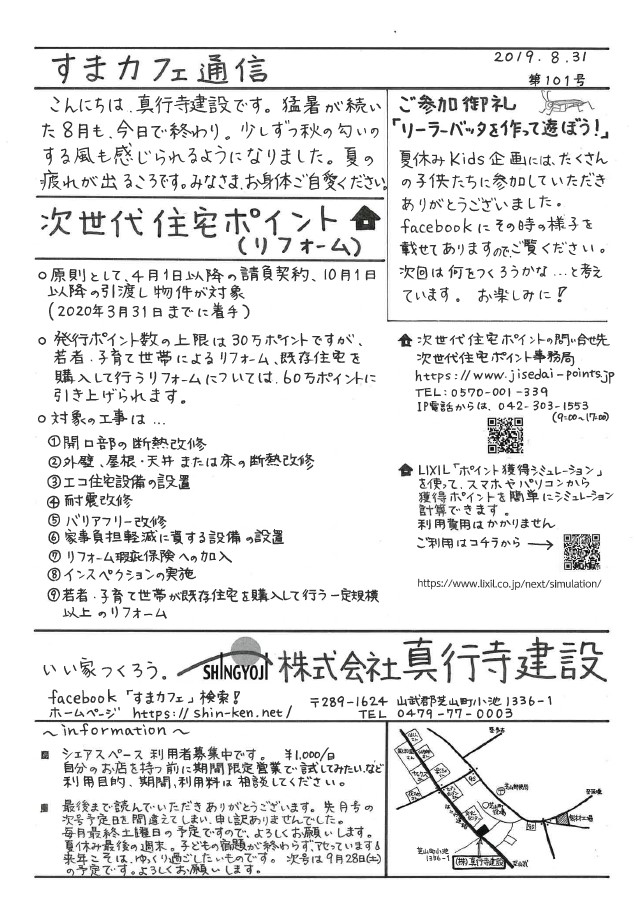 すまカフェ通信
2019.8.31
第101号
こんにちは、真行寺建設です。猛暑が続い
た8月も、今日で終わり。少しずつ秋の匂いの
する風も感じられるようになりました。夏の
疲れが出るころです。みなさま、お身体ご自愛ください。
ご参加御礼
「リーラーバッタを作って遊ぼう!」
夏休みKids企画には、たくさん
の子供たちに参加していただき
ありがとうございました。
facebookにその時の様子を
載せてありますので、ご覧ください。
次回は何をつくろうかな…と考え
ています。 お楽しみに!
次世代住宅ポイント
(リフォーム)
○原則として、4月1日以降の請負契約、10月1日
以降の引渡し物件が対象
(2020年3月31日までに着手)
○発行ポイント数の上限は30万ポイントですが、
若者・子育て世帯によるリフォーム、既存住宅を
購入して行うリフォームについては、60万ポイントに
引き上げられます。
○対象の工事は…
①開口部の断熱改修
②外壁、屋根・天井または床の断熱改修
③エコ住宅設備の設置
④耐震改修
⑤バリアフリー改修
⑥家事負担軽減に資する設備の設置
⑦リフォーム瑕疵保険への加入
⑧インスペクションの実施
⑨若者・子育て世帯が既存住宅を購入して行う一定規模
以上のリフォーム
次世代住宅ポイントの問い合せ先
次世代住宅ポイント事務局
https://www.jisedai-points.jp
TEL:0570-001-339
IP電話からは、042-303-1553
(9:00~17:00)
LIXIL「ポイント獲得シミュレーション」
を使って、スマホやパソコンから
獲得ポイントを簡単にシミュレーション
計算できます。
利用費用はかかりません
ご利用はコチラから→
https://www.lixil.co.jp/next/simulation/
いい家つくろう。 SHINGYOJI 株式会社真行寺建設
facebook「すまカフェ」検索!
ホームページ https://shin-ken.net/
〒289-1624 山武郡芝山町小池1336-1
TEL 0479-77-0003
~information~
シェアスペース利用者募集中です。 ¥1,000/日
自分のお店を持つ前に期間限定営業で試してみたい、など
利用目的、期間、利用料は相談してください。
最後まで読んでいただきありがとうございます。先月号の
次号予定日を間違えてしまい、申し訳ありませんでした。
毎月最終土曜日の予定ですので、よろしくお願いします。
夏休み最後の週末。子どもの宿題が終わらずアセっています!
来年こそは、ゆっくり過ごしたいものです。 次号は9月28日(土)
の予定です。よろしくお願いします。
芝山郵便局
芝山町小池
1336-1
(株)真行寺建設